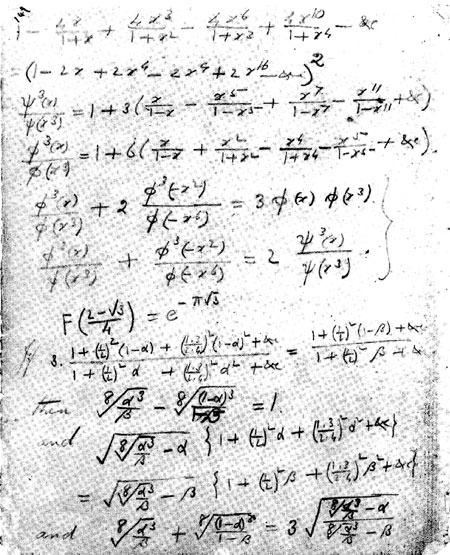 1 - 4x/(1+x) + 4x³/(1+x²) - 4x⁶/(1+x³) + 4x¹⁰/(1+x⁴) - &c
= (1 - 2x + 2x⁴ - 2x⁹ + 2x¹⁶ - &c)²
ψ³(x)/ψ(x³) = 1 + 3(x/(1-x) - x⁵/(1-x⁵) + x⁷/(1-x⁷) - x¹¹/(1-x¹¹) + &c)
φ³(x)/φ(x³) = 1 + 6(x/(1-x) + x²/(1+x²) - x⁴/(1+x⁴) - x⁵/(1-x⁵) + &c).
φ³(x)/φ(x³) + 2 φ³(-x²)/φ(-x⁶) = 3 φ(x) φ(x³).
φ³(x)/φ(x³) + φ³(-x²)/φ(-x⁶) = 2 ψ³(x)/ψ(x³).
F((2-√3)/4) = e^(-π√3)
If 3. (1 + (1/2)²(1-α) + (1·3/2·4)²(1-α)² + &c)/(1 + (1/2)²α + (1·3/2·4)²α² + &c) = (1 + (1/2)²(1-β) + &c)/(1 + (1/2)²β + &c
then ⁸√(α³/β) - ⁸√((1-α)³/(1-β)) = 1
and √(⁸√(α³/β) - α) {1 + (1/2)²α + (1·3/2·4)²α² + &c}
= √(⁸√(α³/β) - β) {1 + (1/2)²β + (1·3/2·4)²β² + &c}
and ⁸√(α³/β) + ⁸√((1-α)³/(1-β)) = 3 √((⁸√(α³/β) - α)/(⁸√(α³/β) - β))